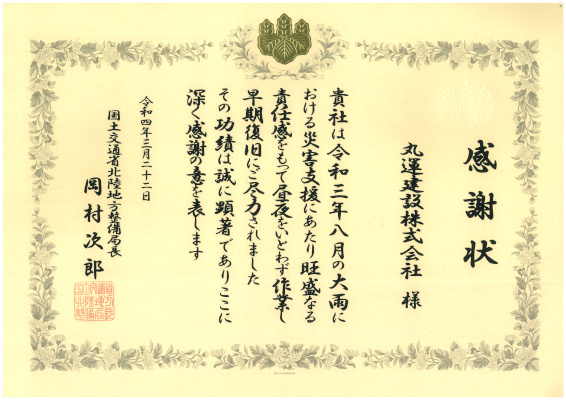 感謝状
丸運建設株式会社 様
貴社は令和三年八月の大雨に
おける災害支援にあたり旺盛なる
責任感をもって昼夜をいとわず作業し
早期復旧にご尽力されました
その功績は誠に顕著でありここに
深く感謝の意を表します
令和四年三月二十二日
国土交通省北陸地方整備局長
岡村次郎